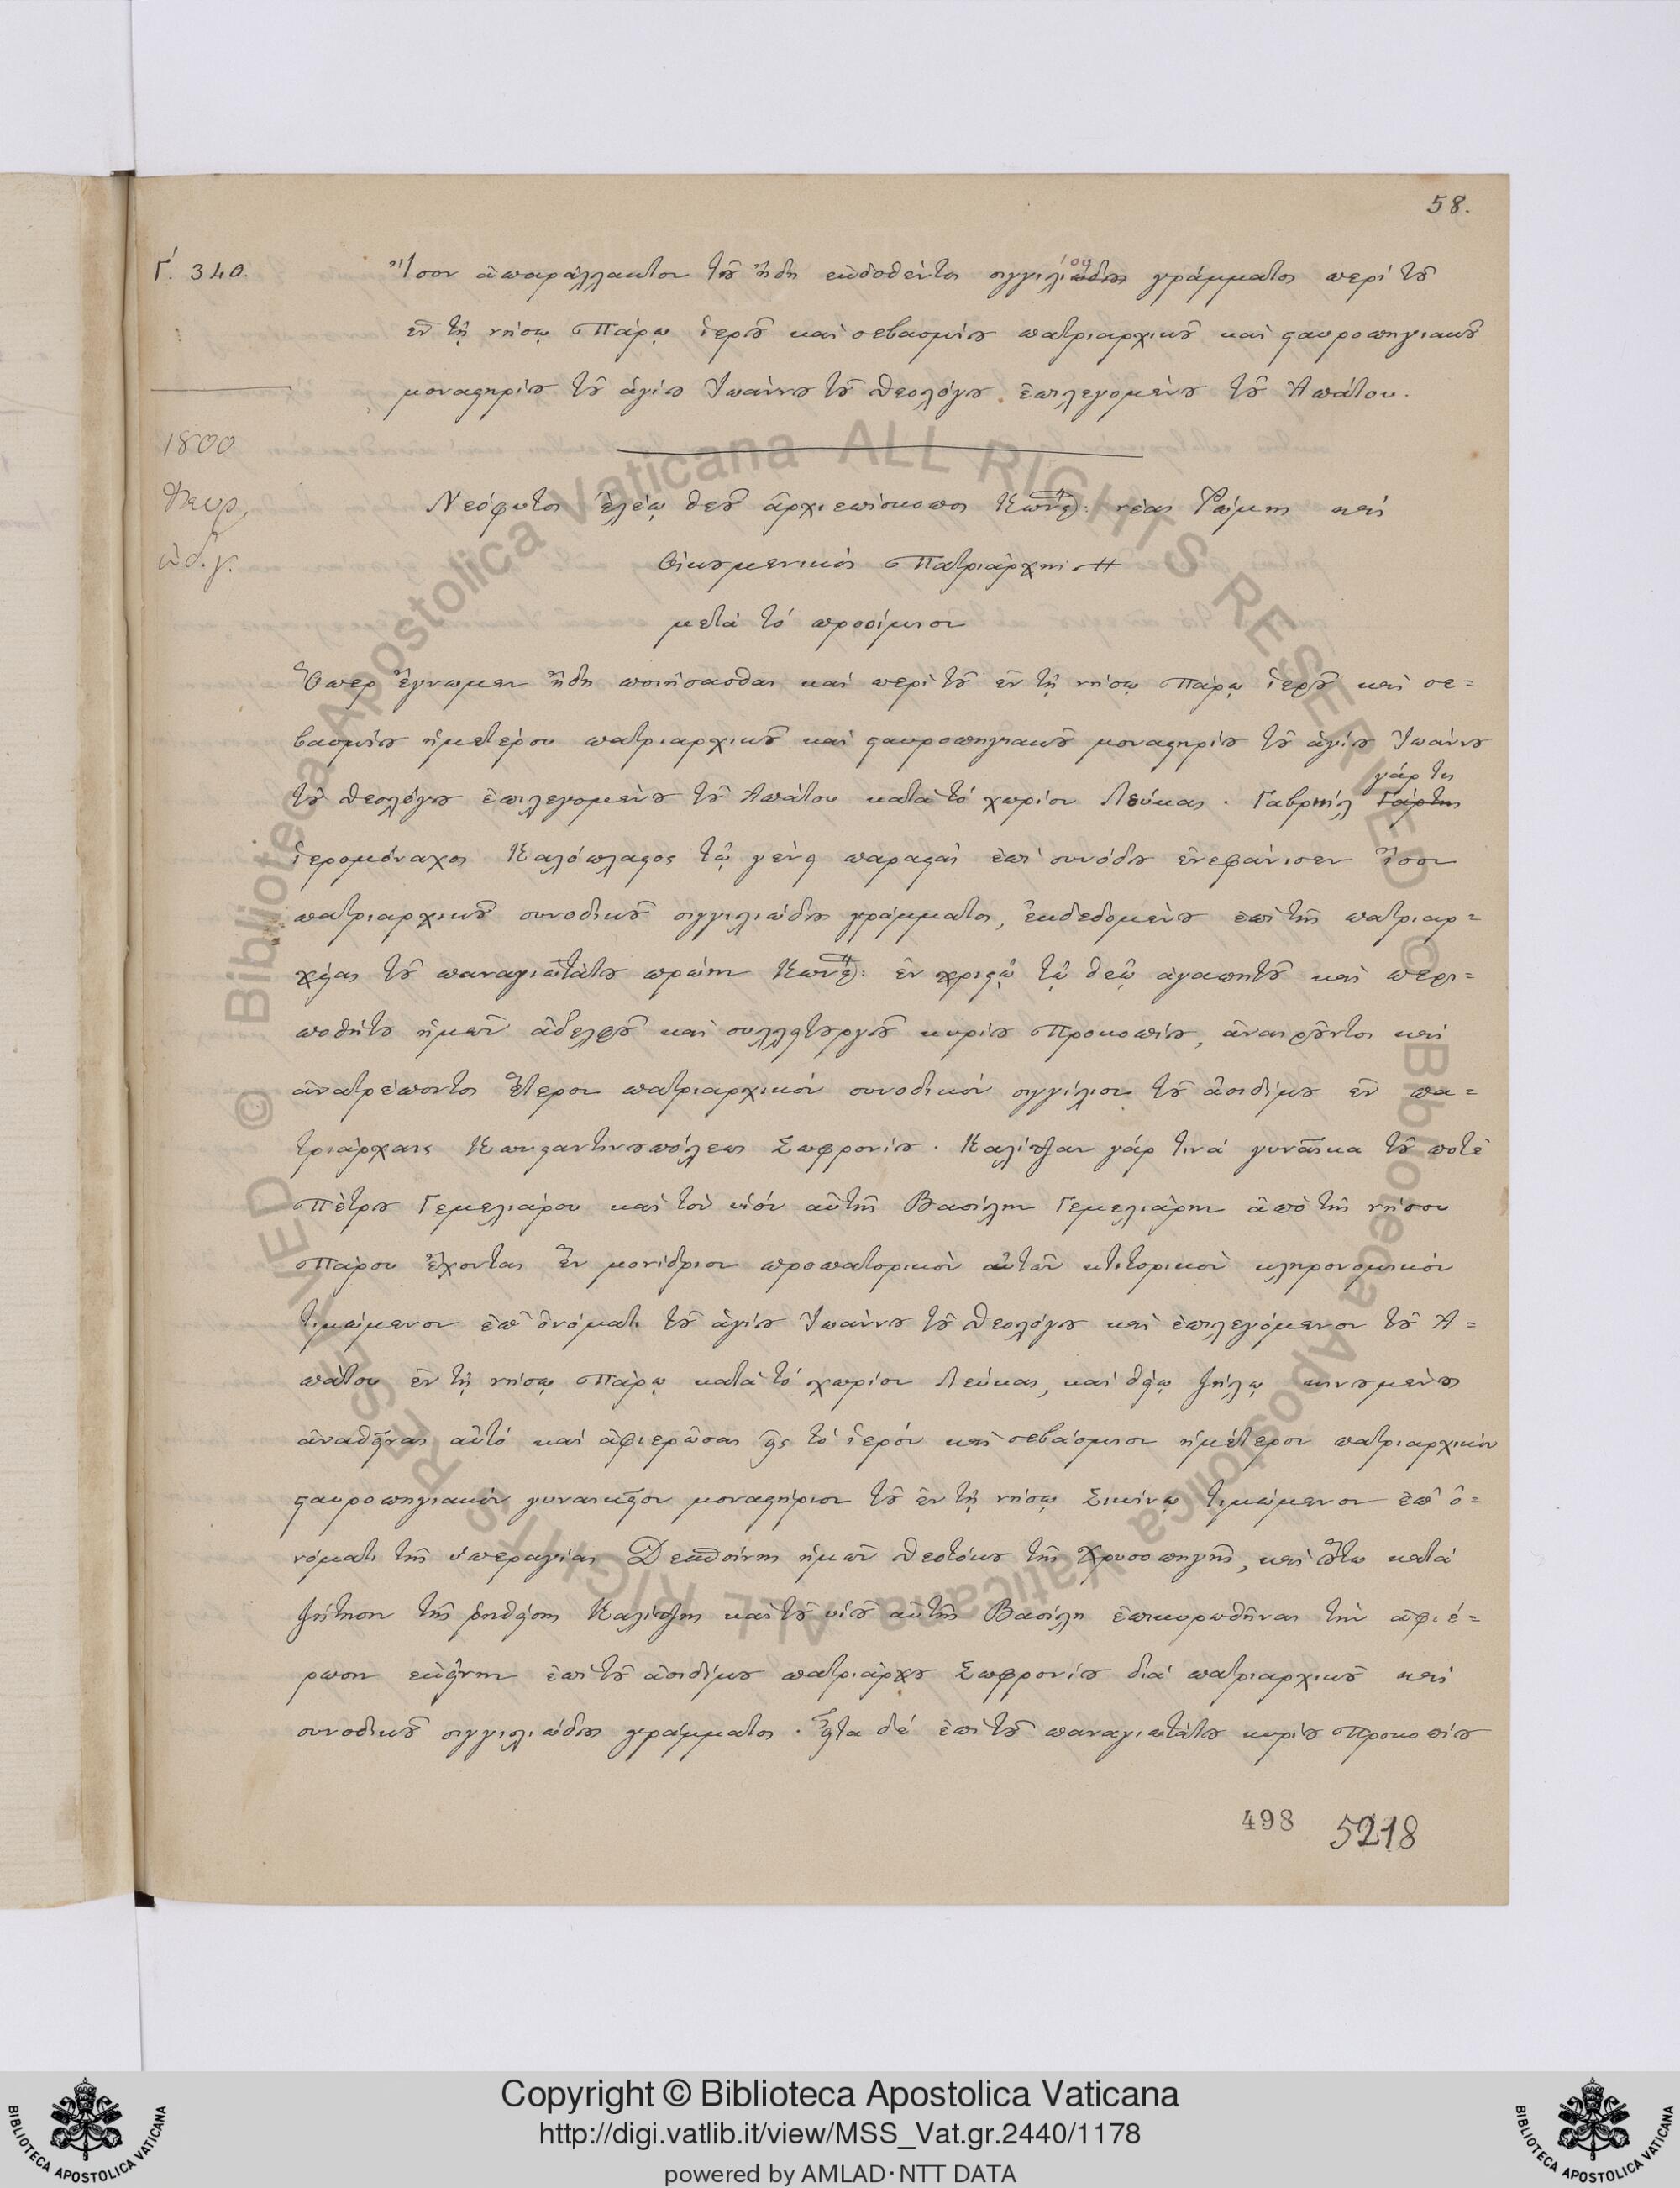 58.
Γ΄. 340.
Ἴσον ἀπαράλλακτον τοῦ ἤδη ἐκδοθέντος σιγγιλίου γράμματος περί τοῦ
ἐν τῇ νήσῳ Πάρῳ ἱεροῦ καί σεβασμίου πατριαρχικοῦ καί σταυροπηγιακοῦ
μοναστηρίου τοῦ ἁγίου Ἰωάννου τοῦ Θεολόγου ἐπιλεγομένου τοῦ Ἀπάτου.
1800
Φευρ.
ἰνδ. γ.
Νεόφυτος ἐλέῳ θεοῦ ἀρχιεπίσκοπος Κωνστ: νέας Ῥώμης καί
Οἰκουμενικός Πατριάρχης
μετά τό προοίμιον
Ὅπερ ἔγνωμεν ἤδη ποιήσασθαι καί περί τοῦ ἐν τῇ νήσῳ Πάρῳ ἱεροῦ καί σε=
βασμίου ἡμετέρου πατριαρχικοῦ καί σταυροπηγιακοῦ μοναστηρίου τοῦ ἁγίου Ἰωάννου
γάρ τις
τοῦ Θεολόγου ἐπιλεγομένου τοῦ Ἀπάτου κατά τό χωρίον Λεύκας . Γαβριήλ Γάρτης
ἱερομόναχος Καλόπλαστος τῷ γένει παραστάς ἐπί συνόδου ἐνεφάνισεν ἴσον
πατριαρχικοῦ συνοδικοῦ σιγγιλιώδους γράμματος, ἐκδεδομένου ἐπί τῆς πατριαρ=
χείας τοῦ παναγιωτάτου πρώην Κωνστ: ἐν χριστῷ τῷ θεῷ ἀγαπητοῦ καί περι=
ποθήτου ἡμῶν ἀδελφοῦ καί συλλειτουργοῦ κυρίου Προκοπίου, ἀναιροῦντος καί
ἀνατρέποντος ἕτερον πατριαρχικόν συνοδικόν σιγγίλιον τοῦ ἀοιδίμου ἐν πα=
τριάρχαις Κωνσταντινουπόλεως Σωφρονίου . Καλίτζαν γάρ τινά γυναῖκα τοῦ ποτέ
Πέτρου Γεμελιάρου καί τόν υἱόν αὐτῆς Βασίλην Γεμελιάρην ἀπό τῆς νήσου
Πάρου ἔχοντας ἕν μονίδριον προπατορικόν αὐτῶν κτιτορικόν κληρονομικόν
τιμώμενον ἐπ᾽ ὀνόματι τοῦ ἁγίου Ἰωάννου τοῦ Θεολόγου καί ἐπιλεγόμενον τοῦ Ἀ=
πάτου ἐν τῇ νήσῳ Πάρῳ κατά τό χωρίον Λεύκας, καί θείῳ ζήλῳ κινουμένους
ἀναθεῖναι αὐτό καί ἀφιερῶσαι εἰς τό ἱερόν καί σεβάσμιον ἡμέτερον πατριαρχικόν
σταυροπηγιακόν γυναικεῖον μοναστήριον τοῦ ἐν τῇ νήσῳ Σικίνῳ τιμώμενον ἐπ᾽ ὀ=
νόματι τῆς ὑπεραγίας Δεσποίνης ἡμῶν Θεοτόκου τῆς Χρυσοπηγῆς, καί οὕτω κατά
ζήτησιν τῆς ῥηθείσης Καλίτζης καί τοῦ υἱοῦ αὐτῆς Βασίλη ἐπικυρωθῆναι τήν ἀφιέ=
ρωσιν ἐκείνην ἐπί τοῦ ἀοιδίμου πατριάρχου Σωφρονίου διά πατριαρχικοῦ καί
συνοδικοῦ σιγγιλιώδους γράμματος . Εἶτα δέ ἐπί τοῦ παναγιωτάτου κυρίου Προκοπίου
498 5218
© Biblioteca Apostolica Vaticana ALL RIGHTS RESERVED
Copyright © Biblioteca Apostolica Vaticana
http://digi.vatlib.it/view/MSS_Vat.gr.2440/1178
powered by AMLAD·NTT DATA
BIBLIOTECA APOSTOLICA VATICANA
BIBLIOTECA APOSTOLICA VATICANA